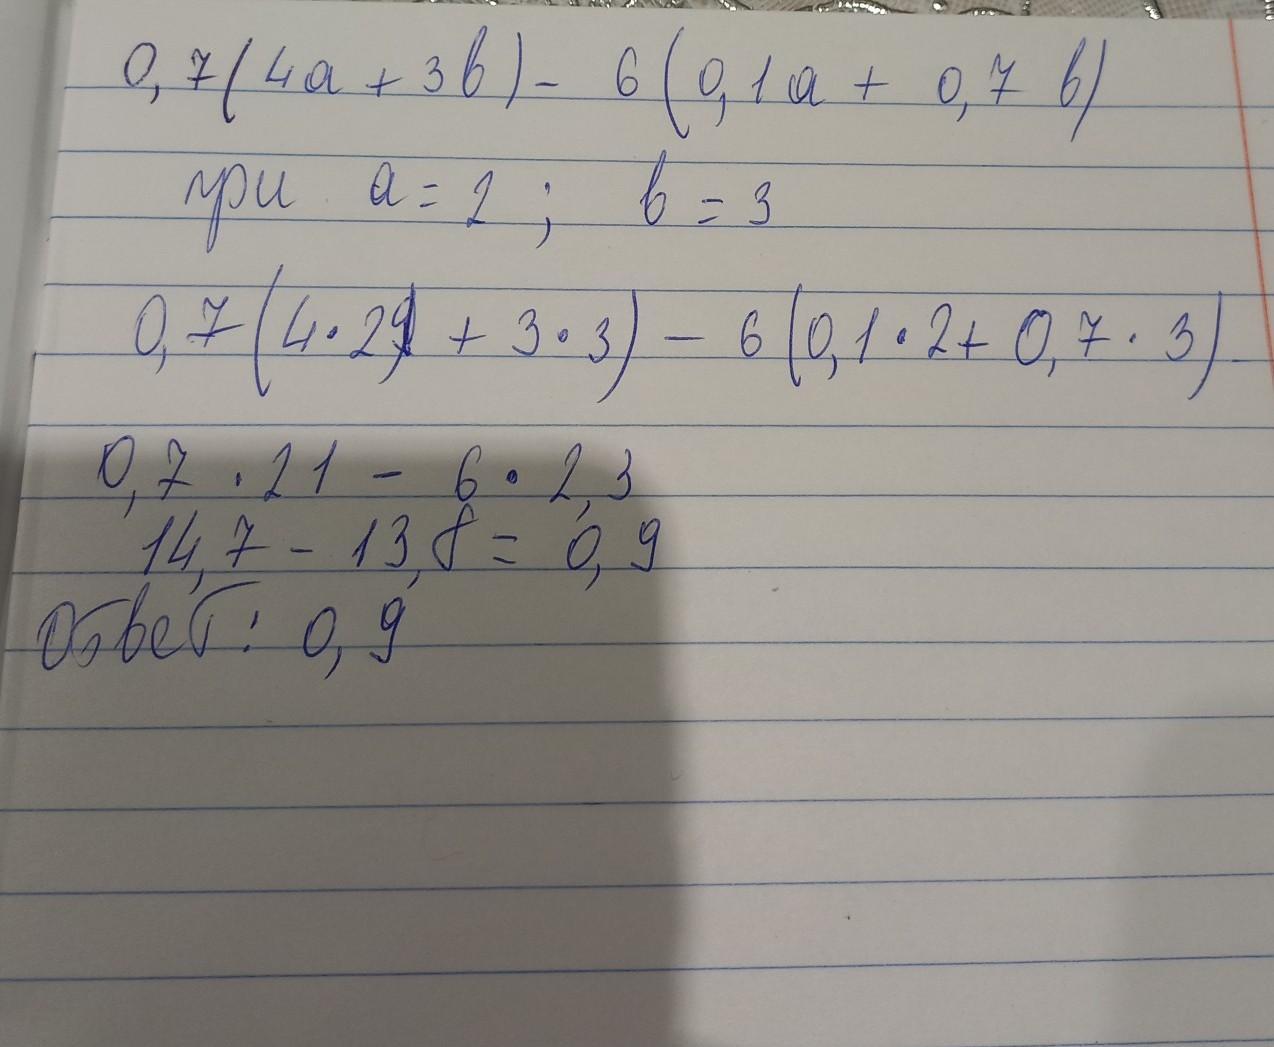 0,7(4a + 3b) - 6(0,1a + 0,7 b)
при a = 2 ; b = 3
0,7(4·2 + 3·3) - 6(0,1·2+ 0,7·3)
0,7 · 21 - 6 · 2,3
14,7 - 13,8 = 0,9
Ответ: 0,9